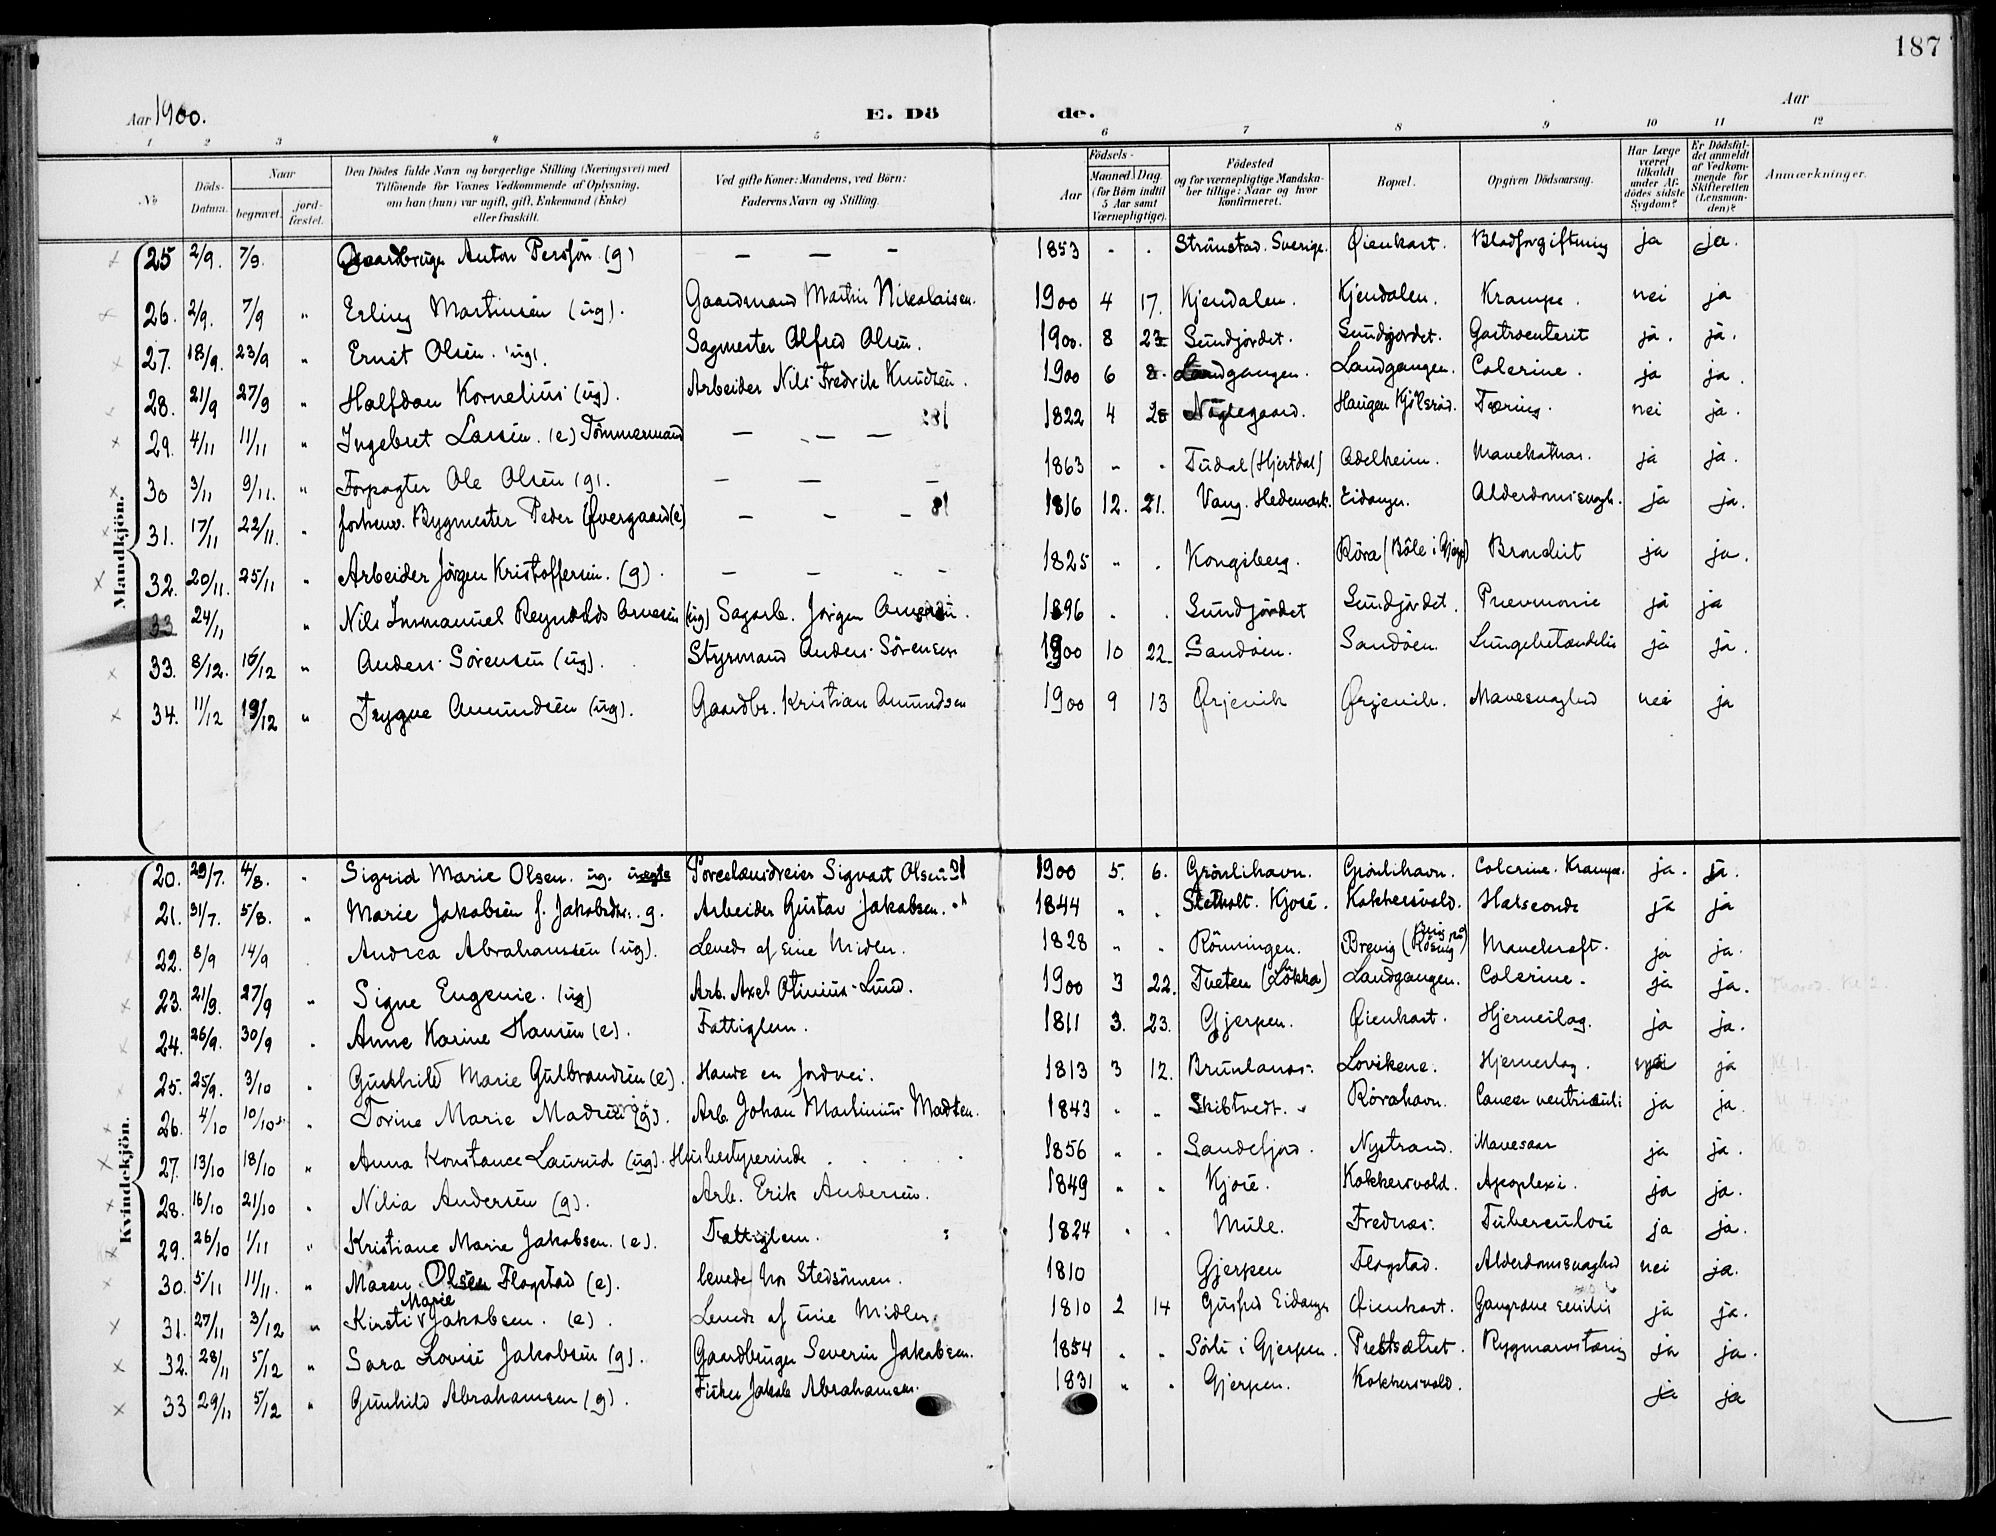 187
Aar 1900. E. Dö de. Aar
1 2 3 4 5 6 7 8 9 10 11 12
No Döds-Datum. Naar begravet. jord-fæstet. Den Dödes fulde Navn og borgerlige Stilling (Næringsvei) med Tilföiende for Voxnes Vedkommende af Oplysning, om han (hun) var ugift, gift, Enkemand (Enke) eller fraskilt. Ved gifte Koner: Mandens, ved Börn: Faderens Navn og Stilling. Födsels- Aar Maaned. Dag. (for Börn indtil 5 Aar samt Værnepligtige). Födested og for værnepligtige Mandskaber tillige: Naar og hvor konfirmeret. Bopæl. Opgiven Dödsaarsag. Har Læge været tilkaldt under Afdödes sidste Sygdom? Er Dödsfaldet anmeldt af Vedkommende for Skifteretten (Lensmanden)? Anmærkninger.
Mandkjön.
25 2/9. 7/9. Gaardbruger Anton Persson (g) — — — 1853 - . Strömstad. Sverige. Øienkast. Blodforgiftning ja ja.
26. 2/9. 7/9 " Erling Martinsen (ug). Gaardmand Martin Nikolaisen. 1900 4 17. Kjendalen. Kjendalen. Krampe. nei ja
27. 18/9. 23/9 " Ernst Olsen. (ug). Sagmester Alfred Olsen. 1900. 8 23 Sundjordet. Sundjordet. Gastroenterit ja. ja.
28. 21/9 27/9 " Halfdan Kornelius (ug). Arbeider Nils Fredrik Knudsen. 1900 6 8. Landgangen. Landgangen. Colerine. ja ja.
29. 4/11 11/11 " Ingebret Larsen. (e) Tömmermand — — — 1822 4 28 Nøglegaard. Haugen Kjölsrød. Tæring. nei ja.
30 3/11 9/11. " Forpagter Ole Olsen (g). — — — 1863 - . Tudal (Hjertdal) Adelheim. Mavekathar. ja ja.
31. 17/11 22/11. " forhenv. Bygmester Peder Øvergaard (e) — — — 1816 12. 21. Vang. Hedemark. Eidanger. Alderdomssvagh. ja ja.
32. 20/11. 25/11 " Arbeider Jörgen Kristoffersen. (g). — — - - 1825 " . Kongsberg. Röra (Böle i Gjerp.) Bronchit ja ja.
33 24/11 " Nils Immanuel Reynolds Arnesen (ug) Sagarb. Jörgen Arnesen. 1896 . . Sundjordet Sundjordet. Pneumonie ja ja
33. 8/12. 16/12 " Anders Sörensen (ug). Styrmand Anders Sörensen 1900 10 22. Sandöen. Sandöen. Lungebetændelse ja ja.
34. 11/12 19/12 " Trygve Amundsen (ug). Gaardbr. Kristian Amundsen 1900 9 13 Ørjevik Ørjevik. Mavesvaghed nei ja
Kvindekjön.
20. 29/7. 4/8. " Sigrid Marie Olsen. ug. uægte Porcelænsdreier Sigvart Olsen 1900 5. 6. Grönlihavn. Grönlihavn. Colerine. Krampe. ja. ja.
21. 31/7. 5/8. " Marie Jakobsen f. Jakobsdtr. g. Arbeider Gustav Jakobsen. 1844 " . Stetholt. Kjose. Kokkersvold. Halsonde ja ja
22. 8/9 14/9 Andrea Abrahamsen (ug). Levede af sine Midler. 1828 " . Rönningen. Brevig Mavekræft. ja ja.
23. 21/9. 27/9 " Signe Eugenie. (ug) Arb. Axel Otinius Lund. 1900 3 22. Tveten (Lökka) Landgangen. Colerine. ja ja.
24. 26/9. 30/9 " Anne Karine Hansen (e). Fattiglem. 1811 3. 23. Gjerpen. Øienkast. Hjerneslag. ja ja.
25. 25/9. 3/10 " Gunhild Marie Gulbrandsen (e). Havde en Jordvei. 1813 3 12. Brunlanæs. Lovikene. Hjerneslag. ja
26. 4/10 10/10 " Torine Marie Madsen (g). Arb. Johan Martinius Madsen. 1843 " " Skibtvedt. Rörahavn. Cancer ventriculi ja ja.
27. 13/10 18/10 " Anna Konstance Laurud (ug). Husbestyrerinde 1856 " . Sandefjord. Nystrand. Mavesaar ja ja.
28. 16/10 21/10 " Nilia Andersen (g). Arb. Erik Andersen. 1849 " . Kjose. Kokkersvold. Apoplexi. ja ja.
29. 26/10 1/11 " Kristiane Marie Jakobsen. (e). Fattiglem. 1824 . . Mule. Frednæs. Tuberculose ja ja.
30. 5/11 11/11. " Maren Olsen Flogstad (e). levede hos Stedsönnen. 1810 Gjerpen Flogstad. Alderdomssvaghed nei ja.
31. 27/11 3/12 " Kirsti Marie Jakobsen. (e). Levede af sine Midler. 1810 2 14 Eidanger Øienkast. Gangræne senilis ja ja.
32. 28/11 5/12 " Sara Lovise Jakobsen (g). Gaardbruger Severin Jakobsen. 1854 " . Sörli i Gjerpen. Prestsætret. Rygmarvstæring ja ja.
33 29/11 5/12 " Gunhild Abrahamsen (g). Fisker Jakob Abrahamsen. 1831 " . Gjerpen. Kokkersvold. ja ja